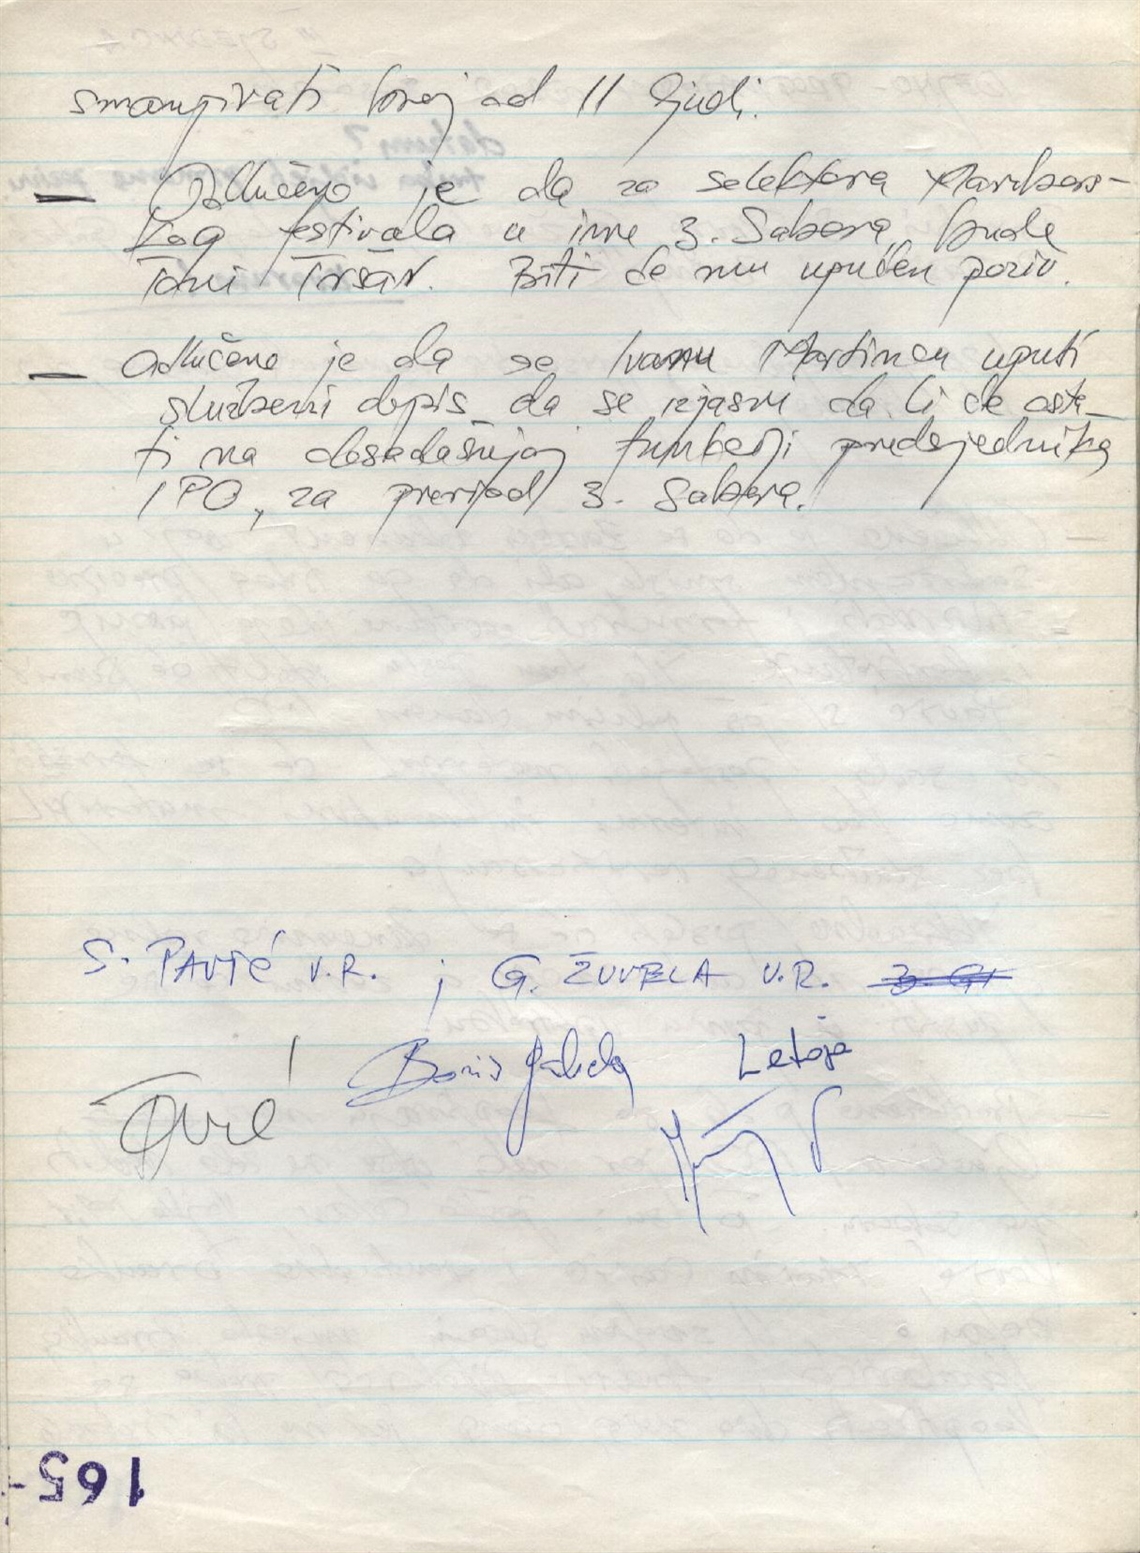 smanjivati broj od 11 ljudi.
— Odlučeno je da za selektora Maribors-
kog festivala u ime 3. Sabora bude
Toni Tršar. Biti će mu upućen poziv.
— Odlučeno je da se Ivanu Martincu uputi
službeni dopis da se izjasni da li će osta-
ti na dosadašnjoj funkciji predsjednika
IPO, za period 3. Sabora.
S. PAVIĆ V.R. ; G. ŽUVELA V.R.
Boris Letoja
165